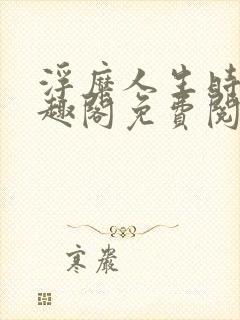 浮靡人生時
趣閣免費閱
寒巖